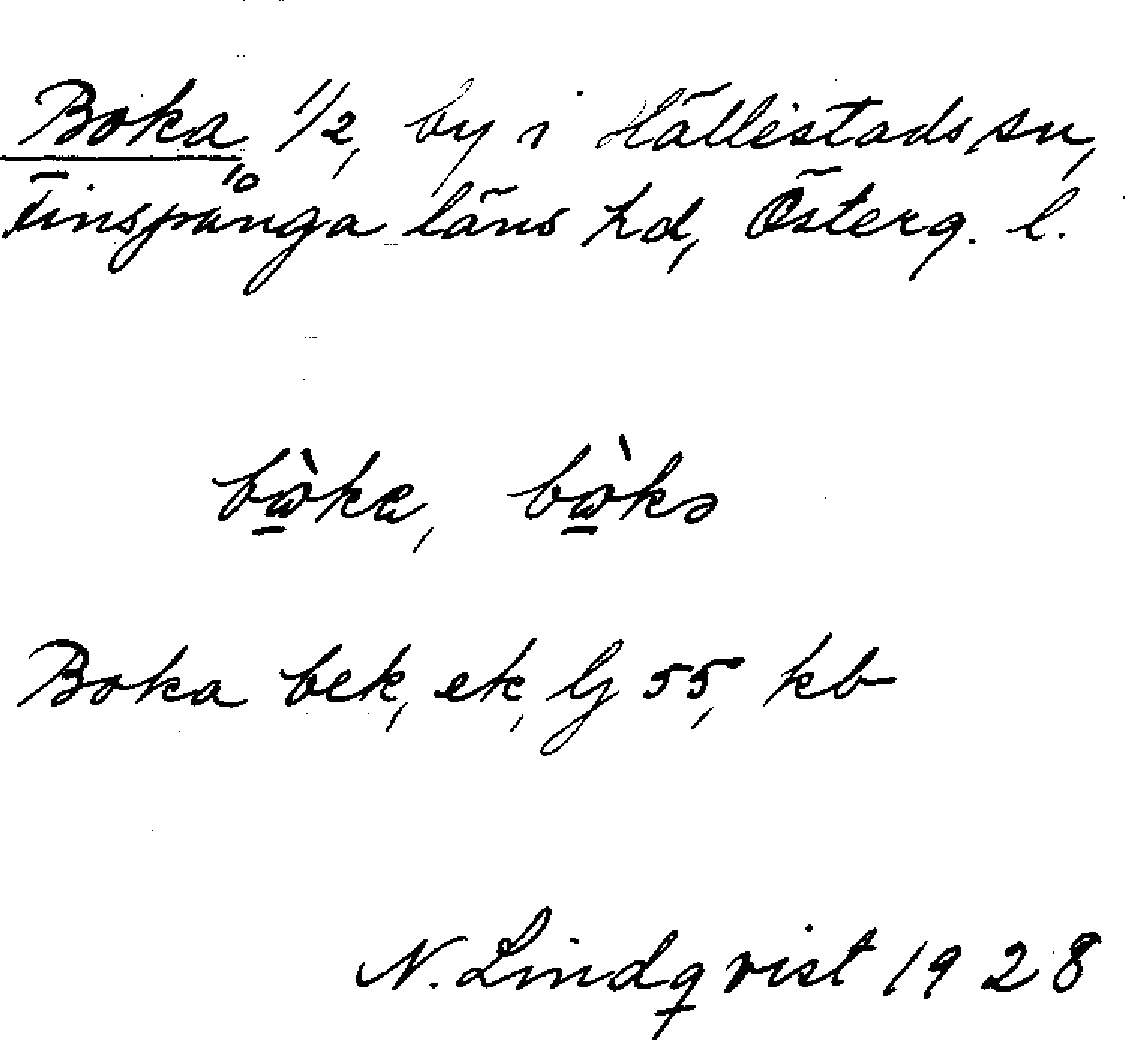 Boka, 1/2, by i Hällestads sn,
Finspånga läns hd, Österg. l.
Boka bek, ek, Gj 55, kb
N. Lindqvist 1928